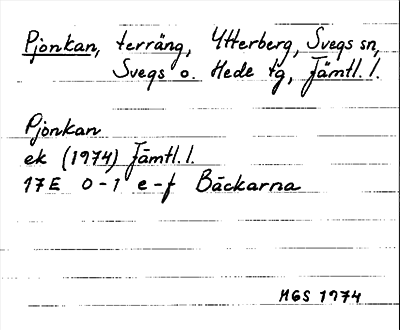 Pjonkan, terräng, Ytterberg, Svegs sn,
Svegs o. Hede tg, Jämtl. l.
Pjonkan
ek (1974) Jämtl. l.
17E 0-1 e-f Bäckarna
MGS 1974